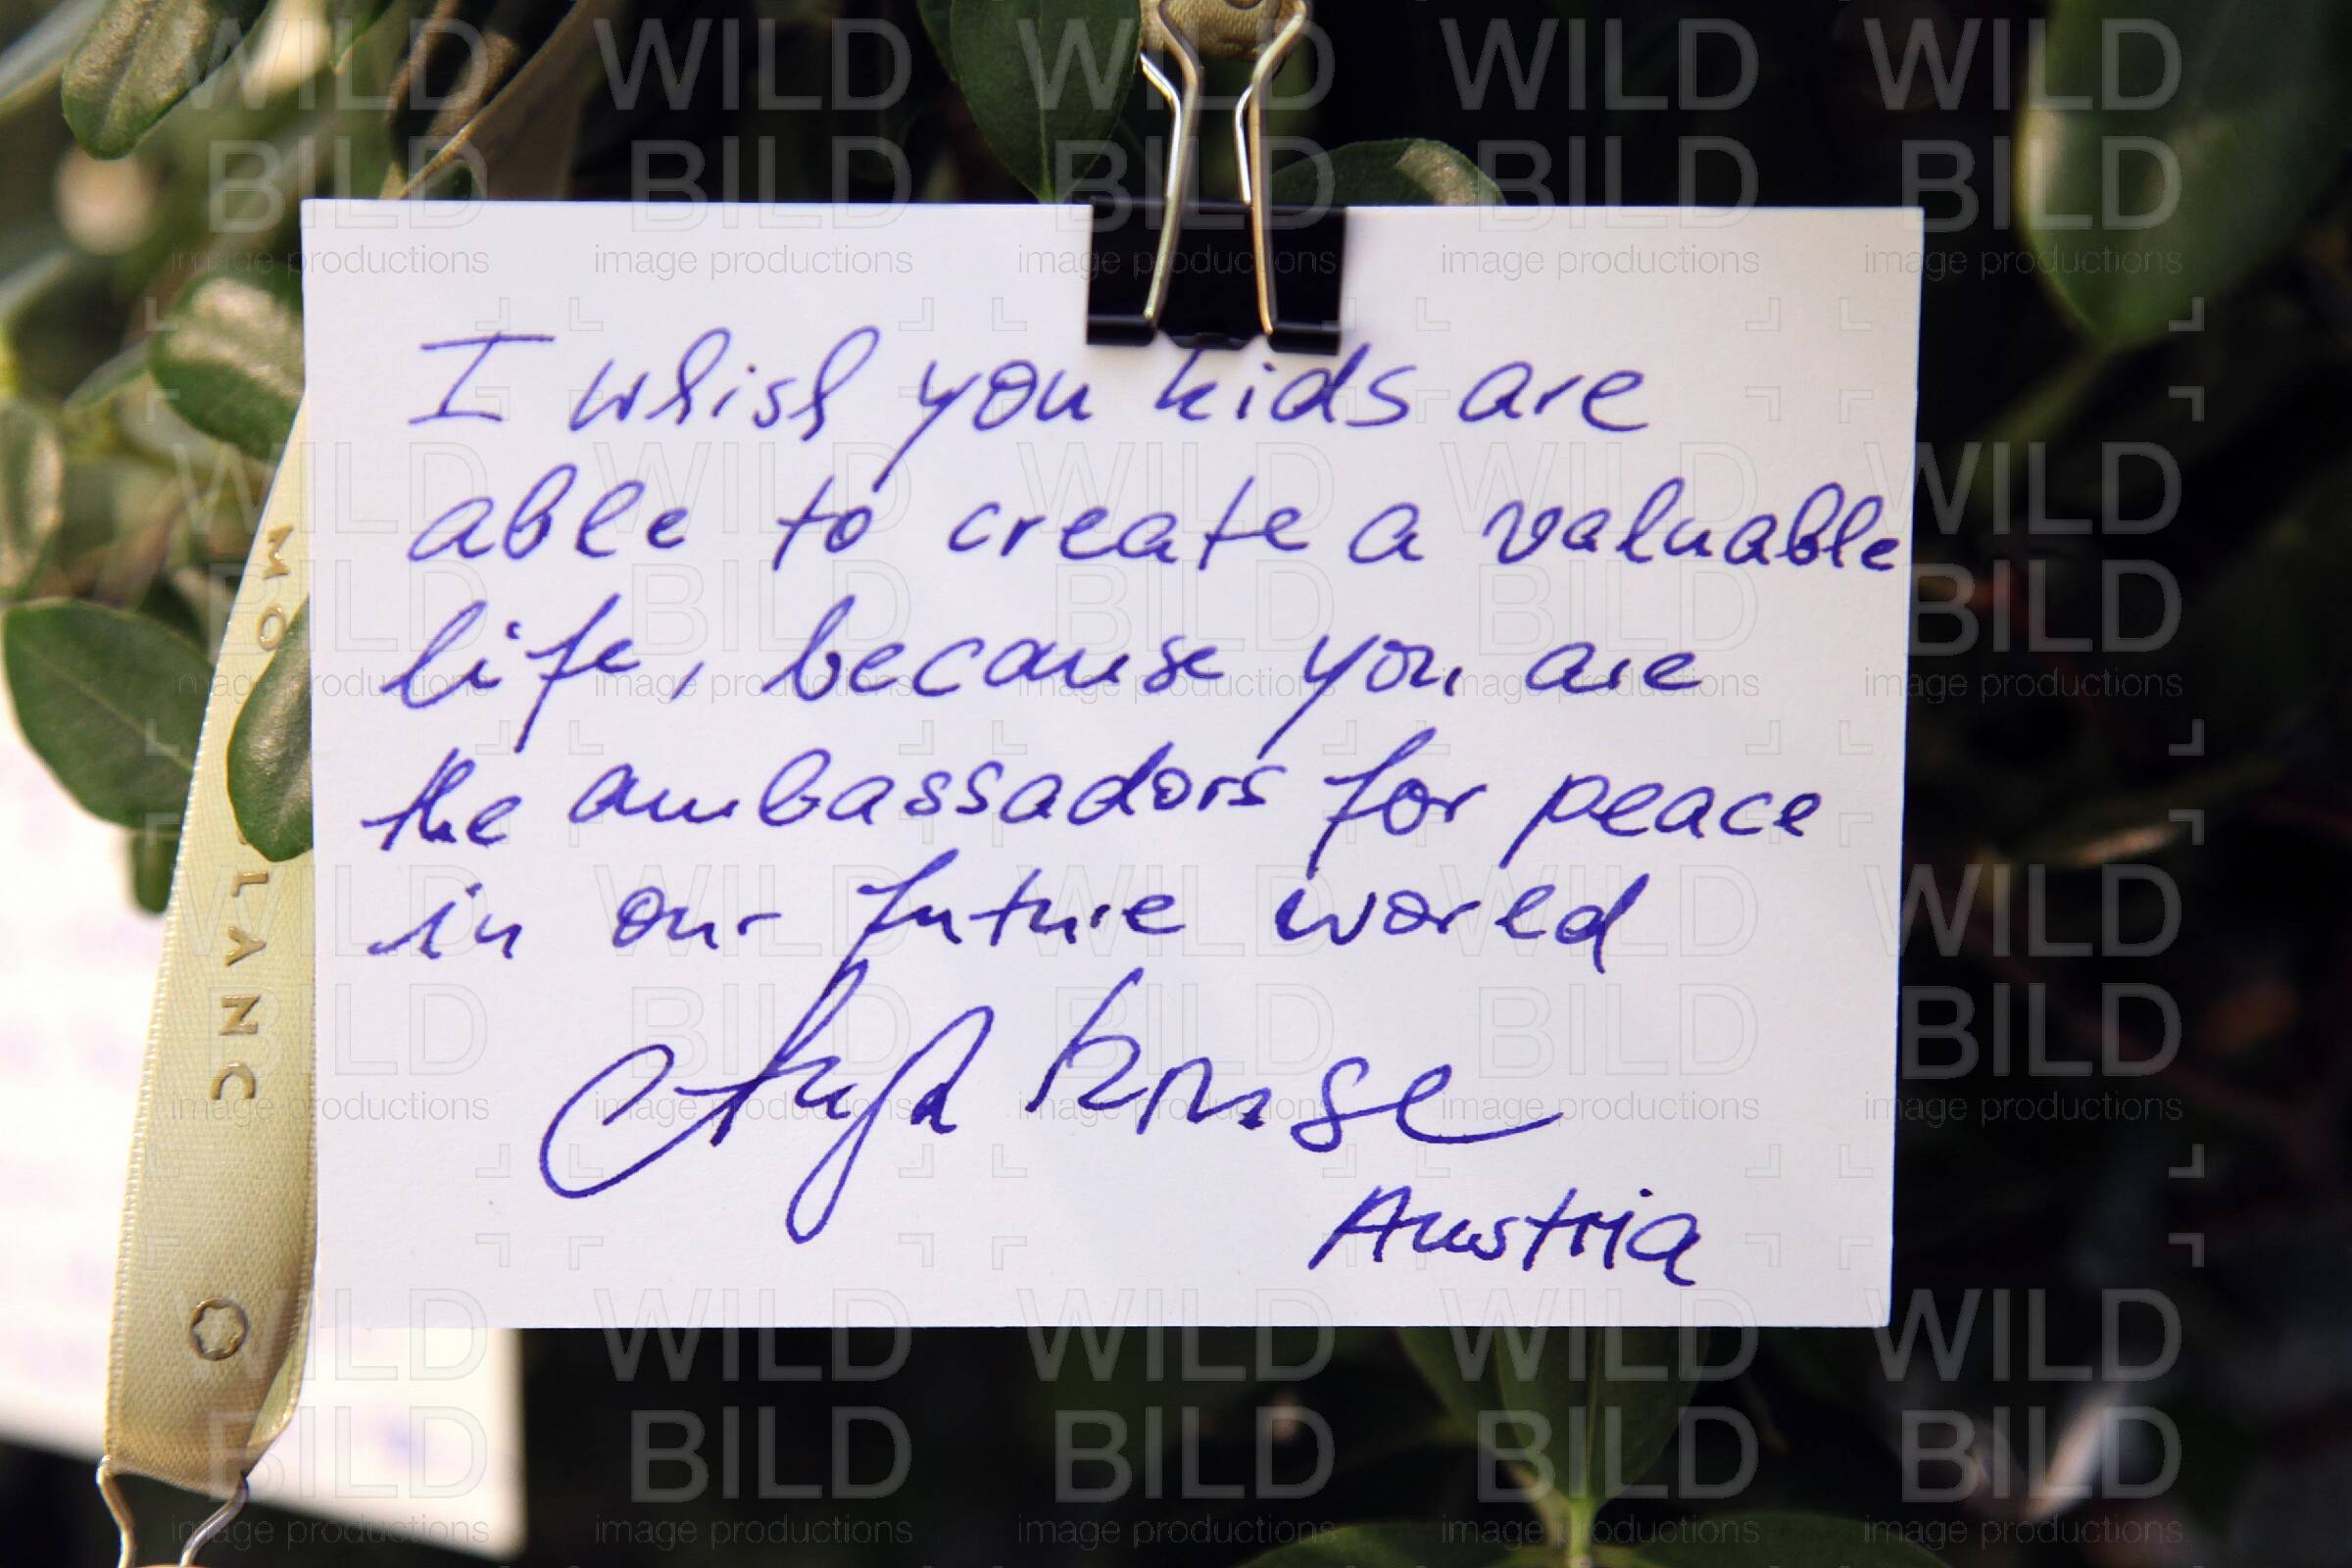 I whish you kids are
able to create a valuable
life, because you are
the ambassadors for peace
in our future world
Kruse
Austria
MO
LANC
WILD
BILD
image productions